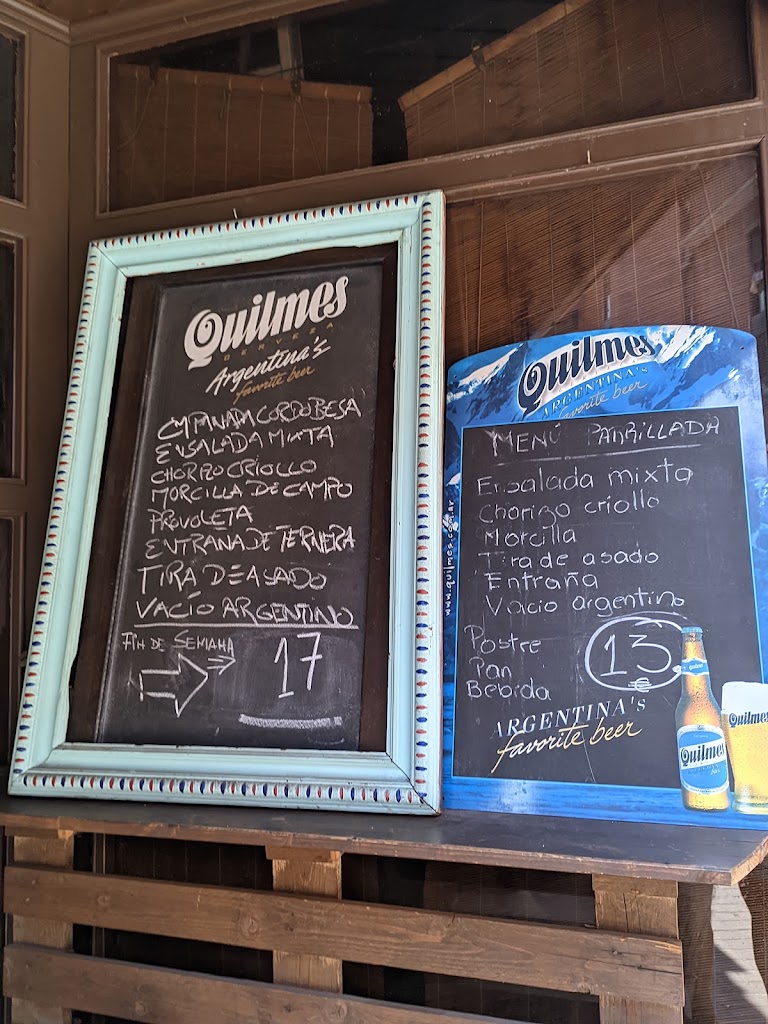 Quilmes
CERVEZA
Argentina's
favorite beer
EMPANADA CORDOBESA
ENSALADA MIXTA
CHORPO CRIOLLO
MORCILLA DE CAMPO
PROVOLETA
ENTRANA DE TERNERA
TIRA DE ASADO
VACÍO ARGENTINO
FIN DE SEMANA
17
Quilmes
ARGENTINA'S
favorite beer
MENÚ PARRILLADA
Ensalada mixta
Chorizo criollo
Morcilla
Tira de asado
Entraña
Vacio argentino
Postre
Pan
Bebida
13€
ARGENTINA'S
favorite beer
www.quilmes.com.ar
Quilmes
Quilmes